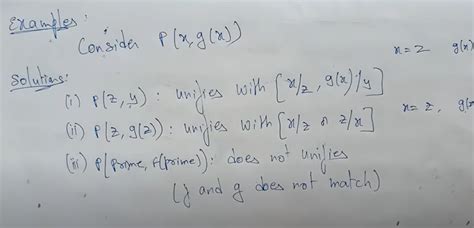 Examples:
Consider P(x, g(x))
x = z g(x)
Solutions:
(i) P(z, y) : unifies with [x/z, g(x)/y]
(ii) P(z, g(z)) : unifies with [x/z or z/x]
x = z, g(z
(iii) P(prime, f(prime)) : does not unifies
(f and g does not match)